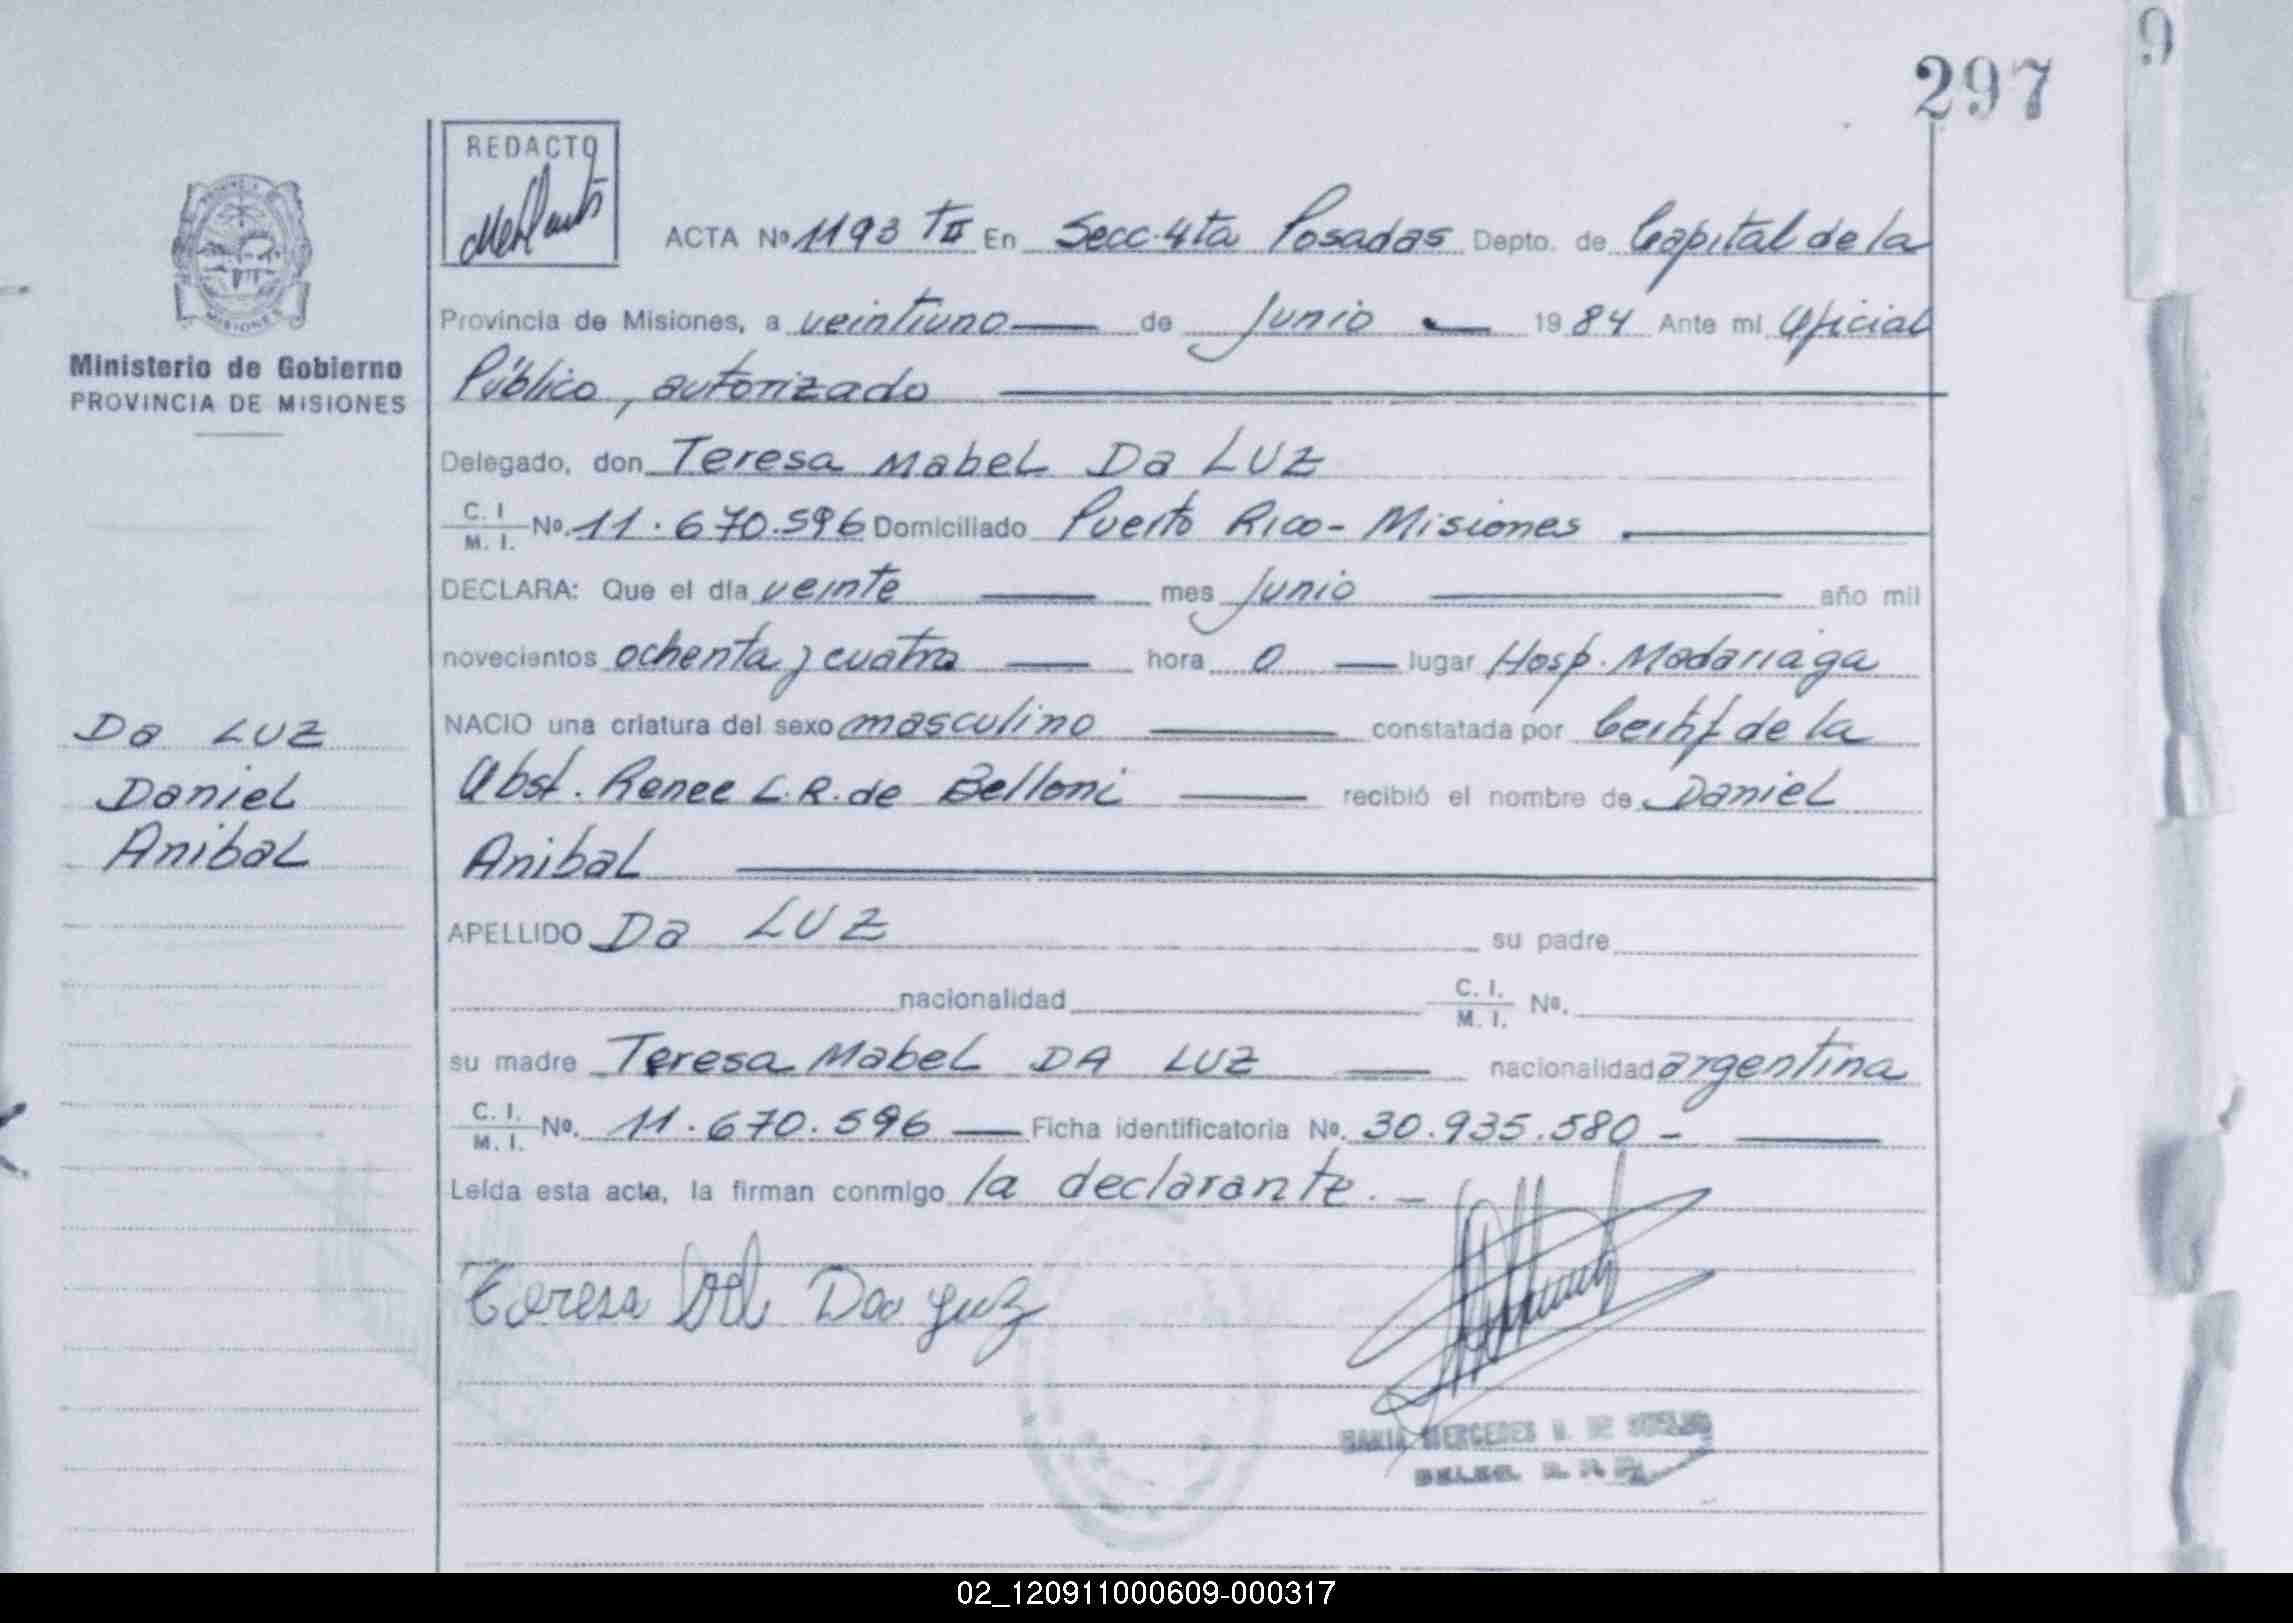 297
9
REDACTO
ACTA Nº 1193 TII En Secc. 4ta Posadas Depto. de Capital de la
Provincia de Misiones, a veintiuno de Junio 1984 Ante mi Oficial
Público, autorizado
Ministerio de Gobierno
PROVINCIA DE MISIONES
Delegado, don Teresa Mabel Da Luz
C. I. M. I. Nº. 11.670.596 Domiciliado Puerto Rico - Misiones
DECLARA: Que el día veinte mes Junio año mil
novecientos ochenta y cuatro hora 0 lugar Hosp. Madariaga
NACIO una criatura del sexo masculino constatada por Certif de la
Obst. Renee L.R. de Belloni recibió el nombre de Daniel
Anibal
Da Luz
Daniel
Anibal
APELLIDO Da Luz su padre
nacionalidad C. I. M. I. Nº.
su madre Teresa Mabel DA LUZ nacionalidad argentina
C. I. M. I. Nº. 11.670.596 Ficha identificatoria Nº. 30.935.580 -
Leída esta acta, la firman conmigo la declarante. -
Teresa Da Luz
MERCEDES DE
02_120911000609-000317